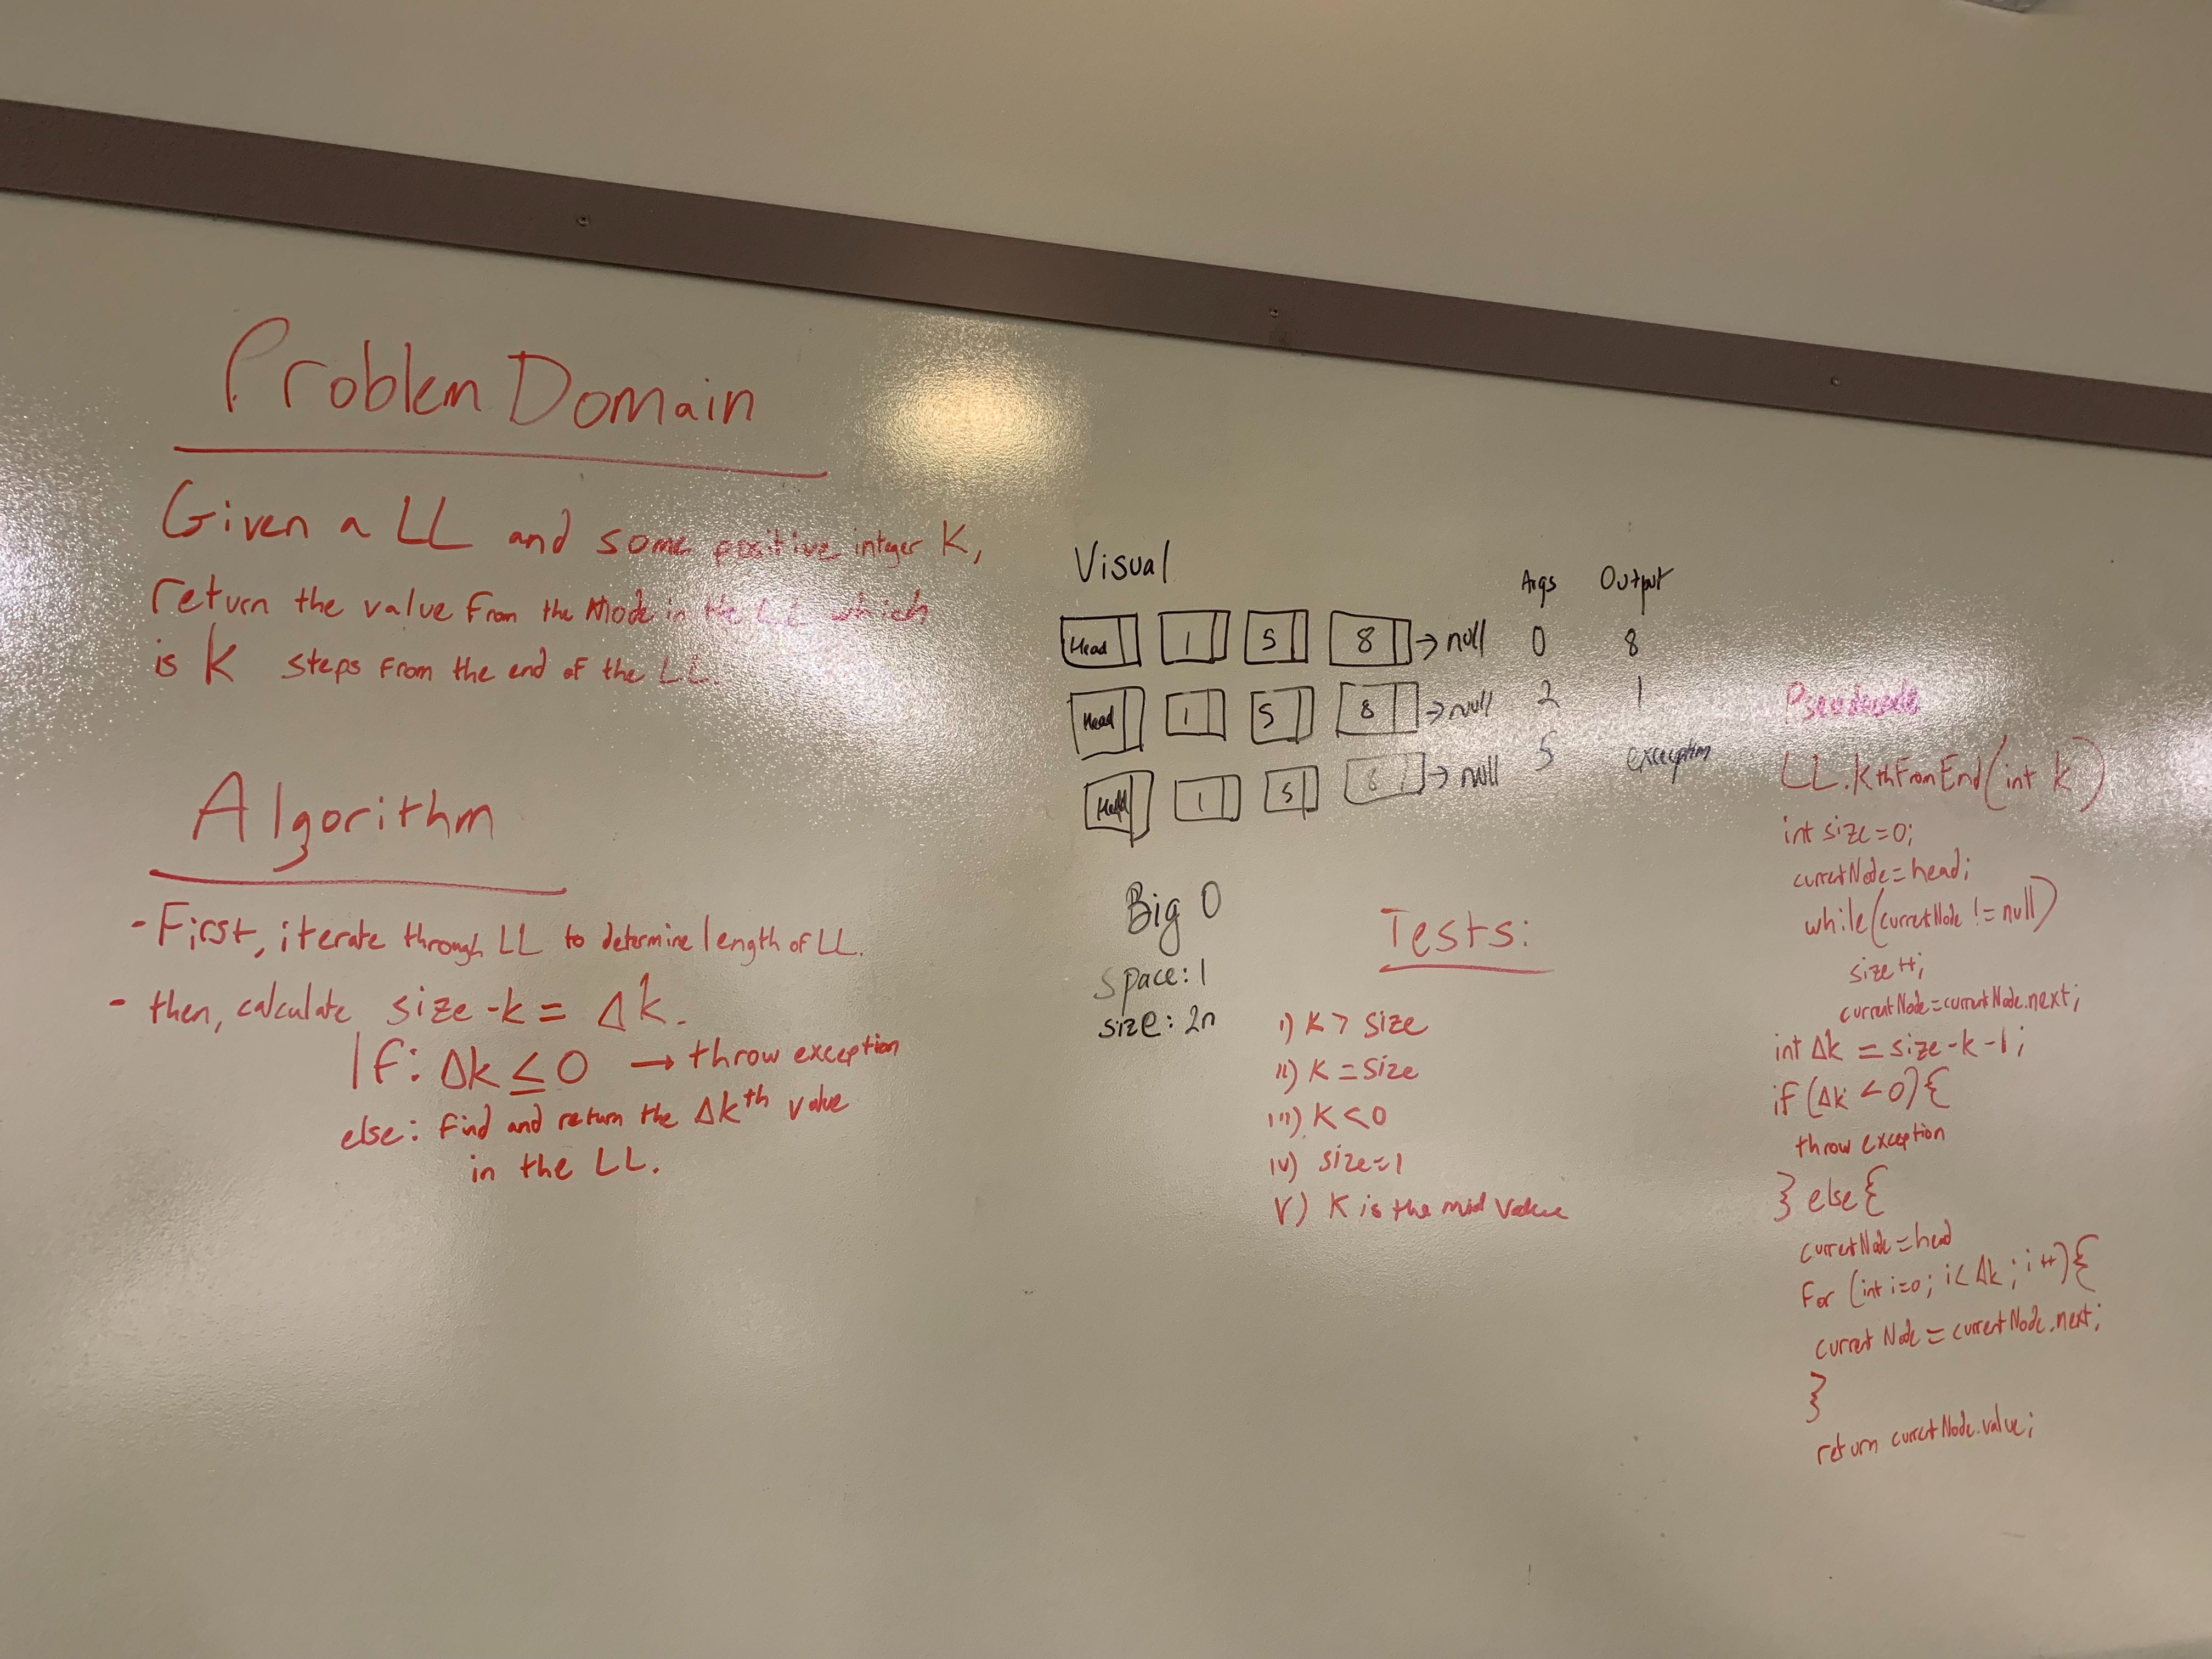 Problem Domain
Given a LL and some positive integer K,
return the value from the Node in the LL which
is K steps from the end of the LL.
Algorithm
- First, iterate through LL to determine length of LL.
- then, calculate size - k = Δk.
If: Δk ≤ 0 → throw exception
else: find and return the Δkth value
in the LL.
Visual Args Output
Head 1 5 8 → null 0 8
Head 1 5 8 → null 2 1
Head 1 5 8 → null 5 exception
Big O
space: 1
size: 2n
Tests:
i) K > size
ii) K = size
iii) K < 0
iv) size=1
V) K is the mid value
Pseudocode
LL.kthFromEnd(int k)
int size=0;
currentNode=head;
while(currentNode != null)
size++;
currentNode=currentNode.next;
int Δk = size-k-1;
if (Δk < 0){
throw exception
} else {
currentNode=head
for (int i=0; i< Δk; i++){
current Node = currentNode.next;
}
return currentNode.value;